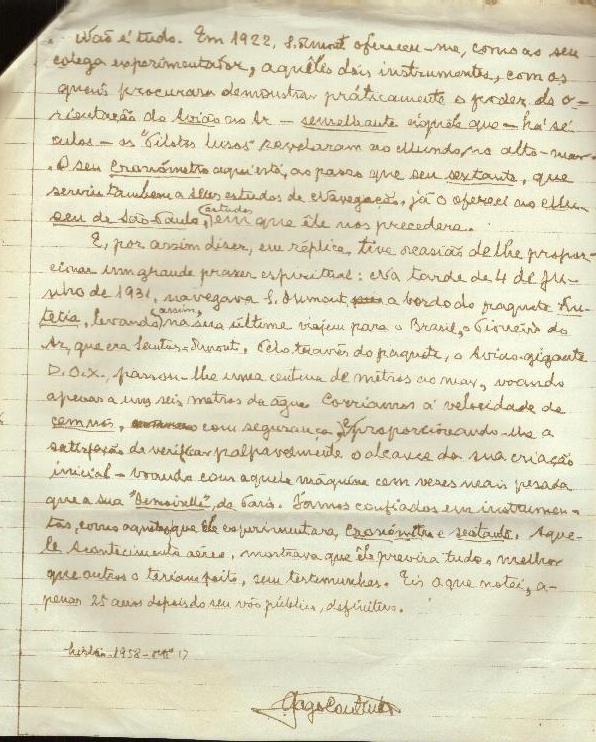 Não é tudo. Em 1922, S. Dumont ofereceu-me, como ao seu
colega experimentador, aquêles dois instrumentos, com os
quais procurara demonstrar práticamente o poder de o-
rientação do Avião ao Ar - semelhante àquele que - há sé-
culos - os "Pilotos lusos" revelaram ao Mundo, no alto-mar.
O seu Cronómetro aqui está, ao passo que seu sextante, que
serviu também a seus estudos de Navegação, já o ofereci ao Mu-
seu de São-Paulo, cidade em que êle nos precedera.
E, por assim dizer, em réplica, tive ocasião de lhe propor-
cionar um grande prazer espiritual: Na tarde de 4 de Ju-
nho de 1931, navegava S. Dumont, a bordo do paquete Lu-
tetia, levando assim, na sua última viajem para o Brasil, o Pioneiro do
Ar, que era Santos-Dumont. Pelo través do paquete, o Avião-gigante
D.O.X., passou-lhe uma centena de metros ao mar, voando
apenas a uns seis metros da água. Corriamos à velocidade de
cem nós, com segurança, proporcionando-lhe a
satisfação de verificar palpavelmente o alcance da sua criação
inicial - voando com aquela máquina cem vezes mais pesada
que a sua "Demoiselle", de Paris. Iamos confiados em instrumen-
tos, como aqueles que êle experimentara, Cronómetro e sextante. Aque-
le Acontecimento aéreo, mostrava que êle previra tudo, melhor
que outros o teriam feito, sem testemunhas. Eis o que notei, a-
penas 25 anos depois do seu vôo público, definitivo.
Lisboa - 1958 - 17
Gago Coutinho